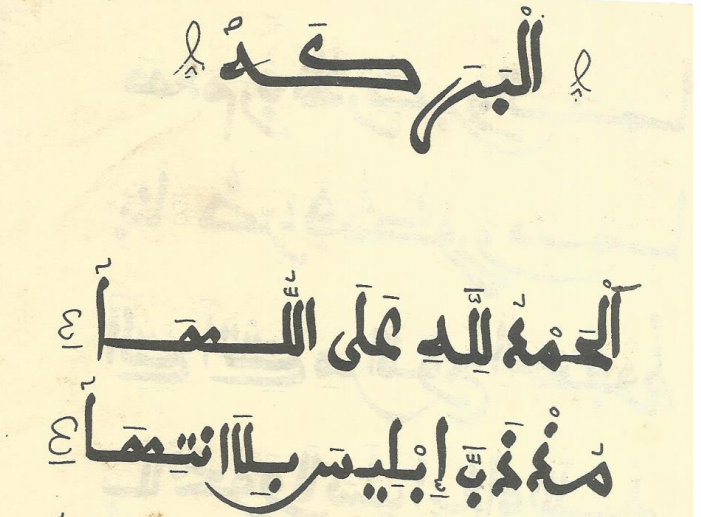 الْبَرَكَةْ
ألْحَمْدُ لِلَّهِ عَلَى اللُّهَا
مُذْ ذَبَّ إِبْلِيسَ بِلَا انتِهَا